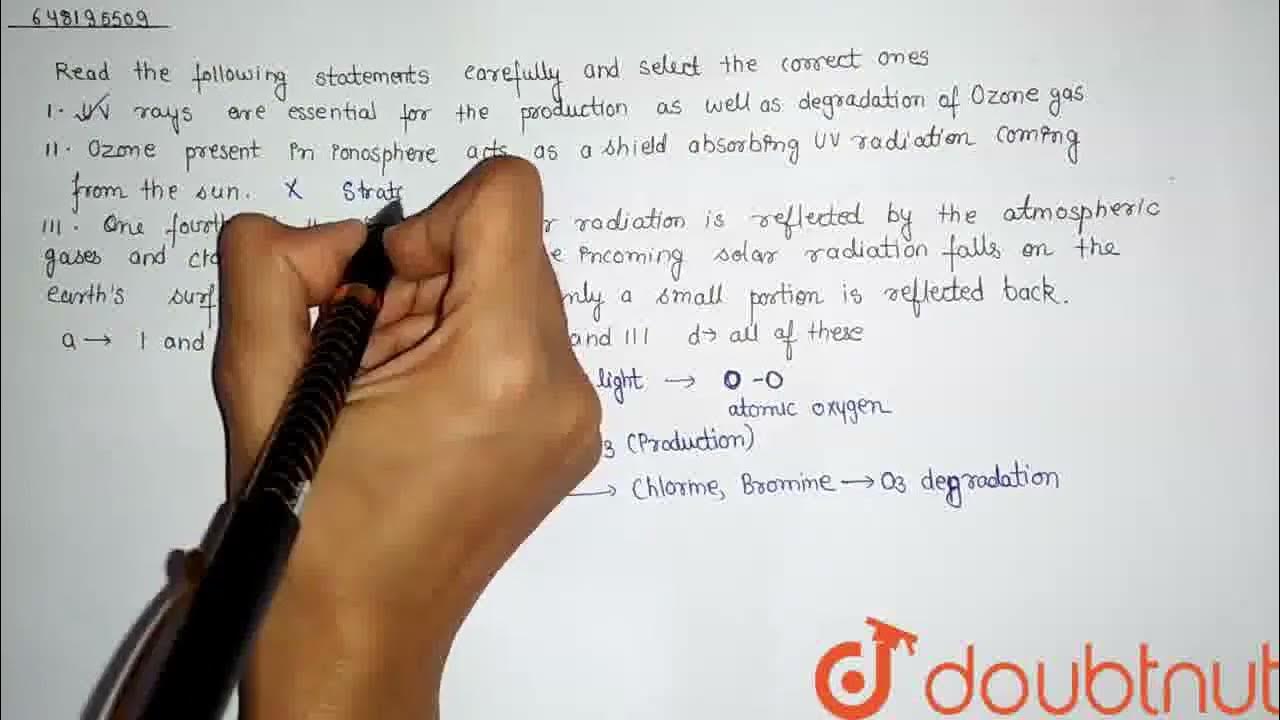 648195509
Read the following statements carefully and select the correct ones
I. UV rays are essential for the production as well as degradation of Ozone gas
II. Ozone present in ionosphere acts as a shield absorbing UV radiation coming
from the sun. X Strato
III. One fourth radiation is reflected by the atmospheric
gases and incoming solar radiation falls on the
earth's only a small portion is reflected back.
a → I and and III d→ all of these
light → O - O
atomic oxygen
3 (Production)
→ Chlorine, Bromine → O3 degradation
doubtnut